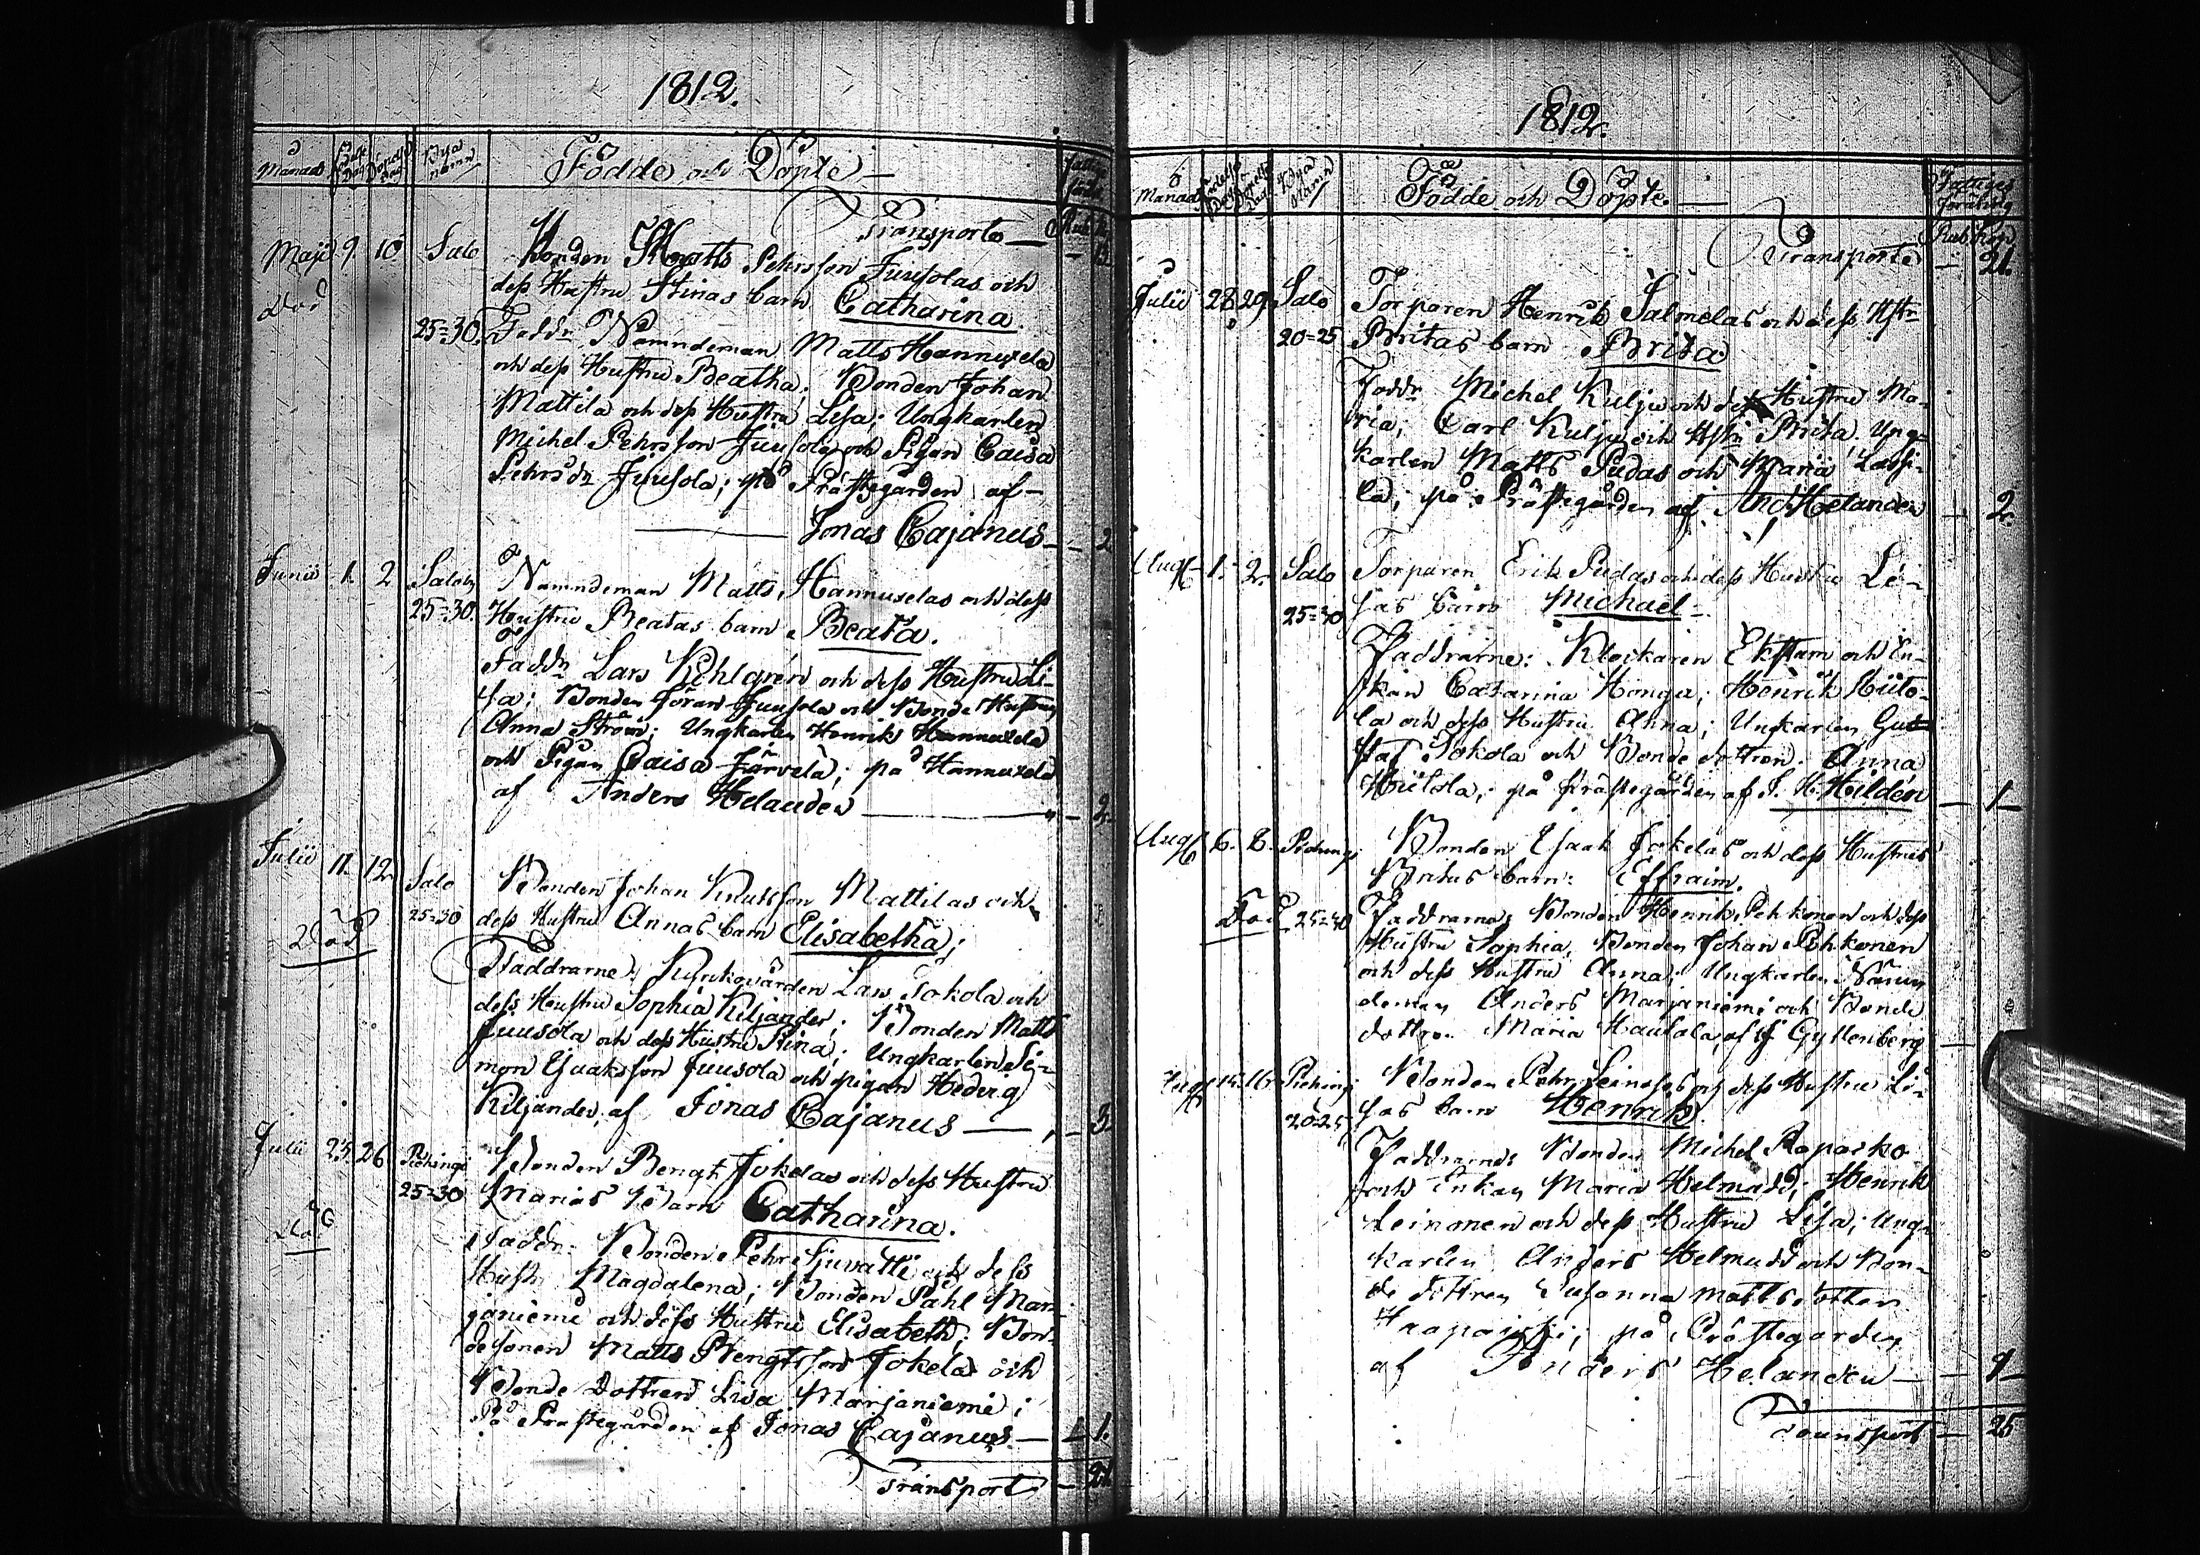 1812.
Månad Föd. Dag Döpelse Dag Byarnamn Födde och Döpte
Transporte — Rub. K.
Maji 9. 10 Salo Bonden Matts Pehrsson Juusolas och — 13.
Död dess Hustru Stinas barn Catharina.
25=30. Faddr Nämndeman Matts Hannuxela
och dess Hustru Beatha; Bonden Johan
Mattila och dess Hustru Lisa; Ungkarlen
Michel Pehrsson Juusola och Pigan Caisa
Pehrsdr Juusola; på Prästegården af —
Jonas Cajanus — 2
Junii 1. 2 Salo Nämndeman Matts Hannuxelas och dess
25=30. Hustru Beatas barn Beata.
Faddr Lars Kihlgrén och dess Hustru Li-
sa; Bonden Jöran Juusola och Bonde Hustrun
Anna Ström; Ungkarlen Henrik Hannuxela
och Pigan Caisa Järvelä; på Hannuxela
af Anders Helander — 2.
Julii 11. 12. Salo Bonden Johan Knutsson Mattilas och
25=30 dess Hustru Annas barn Elisabetha;
Död
Faddrarne: Kyrkovärden Lars Jokola och
dess Hustru Sophia Kiljander; Bonden Matts
Juusola och dess Hustru Stina; Ungkarlen Si-
mon Isaksson Juusola och pigan Hedvig
Kiljander, af Jonas Cajanus — 3
Julii 25. 26. Piehingi Bonden Bengt Jokelas och dess Hustru
25=30 Marias Barn Catharina.
Död
Faddr. Bonden Pehr och dess
Hustr Magdalena; Bonden Påhl Mar-
janiemi och dess Hustru Elisabeth; Bon-
desonen Matts Bengtsson Jokela och
Bonde Dottren Lisa Marjaniemi;
På Prästegården af Jonas Cajanus. — 1.
Transport — 21
1812.
Månad Födelse Dag Döpelse Dag Byar Namn Födde och Döpte Fattiges försörjning
Transporte Rub. Kop. — 21.
Julii 28. 29. Salo Torparen Henrik Salmelas och dess Hstr
20=25 Britas barn Brita
Faddr Michel Kulju och dess Hustru Ma-
ria; Carl Kulju och Hstr Brita; Ung-
karlen Matts Pudas och Maria Lassi-
la; på Prästegården af And. Helander — 2.
Aug. 1. 2. Salo Torparen Erik Pudas och dess Hustru Li-
25=30 sas barn Michael
Faddrarne: Klockaren Ekstam och En-
kan Catarina Honga; Henrik Hiito-
la och dess Hustru Anna; Unkarlen Gus-
taf Jokola och Bonde dottren Anna
Hiitola; på Prästegården af J. H. Hildén — 1 —
Aug. 6. 8. Piehingi Bonden Isaak Jokelas och dess Hustrus
Britas barn: Effraim.
Död 25=30 Faddrarne; Bonden Henrik Pehkonen och dess
Hustru Sophia; Bonden Johan Pehkonen
och dess Hustru Anna; Ungkarlen Nämn-
deman Anders Marjaniemi och Bonde
dottren Maria Hautala, af J. Gyllenberg —
Aug. 15. 16. Piehingi Bonden Pehr Leinoses och dess Hustru Li-
20=25 sas barn Henrik
Faddrarne Bonden Michel Rapasko
och Enkan Maria Helmudd; Henrik
Leinonen och dess Hustru Lisa; Ung-
karlen Anders Helmudd och Bon-
de dottren Susanna Mattsdotter
Haapajoki; på Prästegården
af Anders Helander — 1 —
Transport — 25